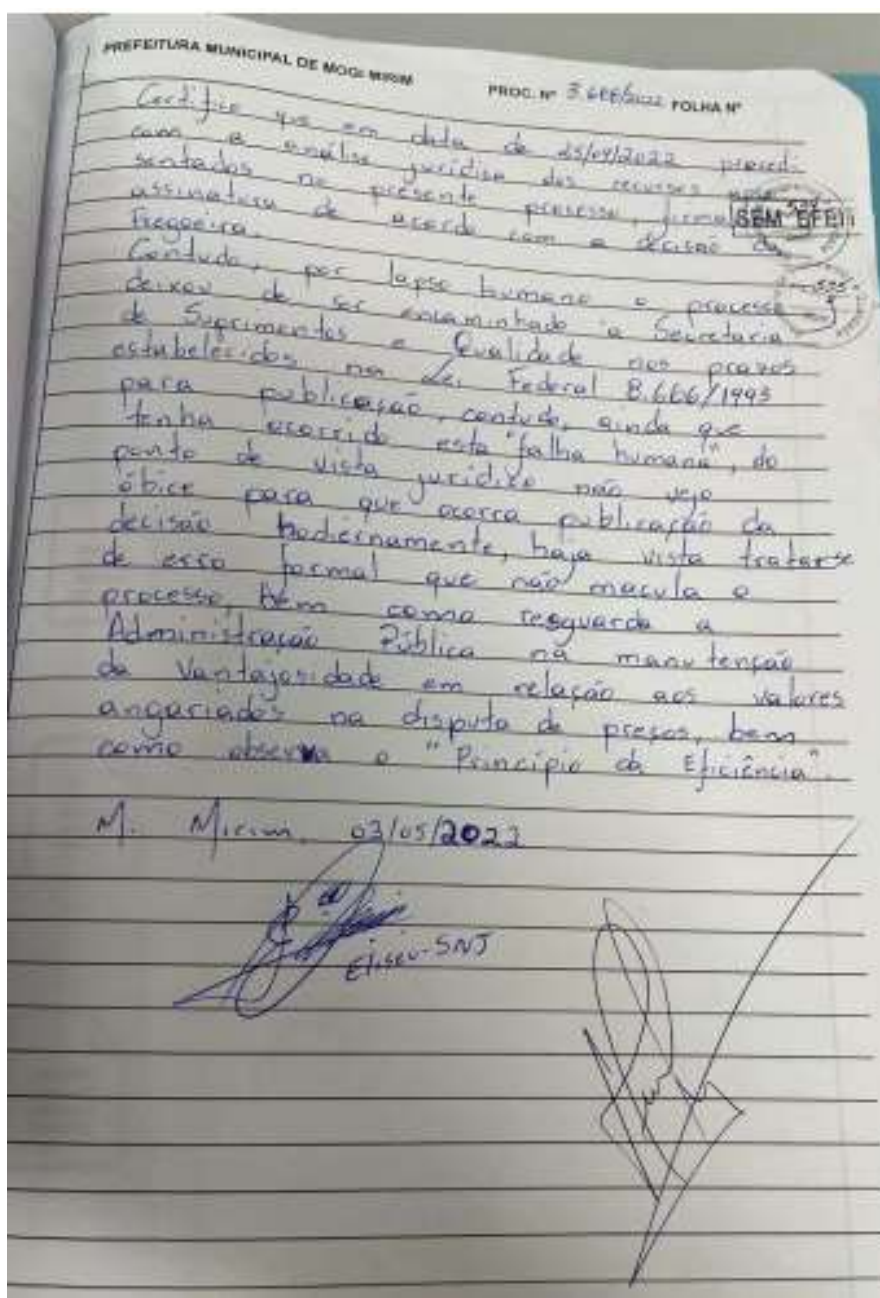 PREFEITURA MUNICIPAL DE MOGI MIRIM PROC. Nº 3.666/2022 FOLHA Nº
Certifico que em data de 25/04/2022 procedi
com a análise jurídica dos recursos apre-
sentados no presente processo,
assinatura de acordo com a decisão da
Pregoeira.
SEM EFEIT
Contudo, por lapso humano o processo
deixou de ser encaminhado a Secretaria
de Suprimentos e Qualidade nos prazos
estabelecidos na Lei Federal 8.666/1993
para publicação, contudo, ainda que
tenha ocorrido esta "falha humana", do
ponto de vista jurídico não vejo
óbice para que ocorra publicação da
decisão hodiernamente, haja vista tratarse
de erro formal que não macula o
processo, bem como resguarda a
Administração Pública na manutenção
da Vantajosidade em relação aos valores
angariados na disputa de preços, bem
como observa o "Princípio da Eficiência".
M. Mirim, 03/05/2022
Eliseu-SNJ